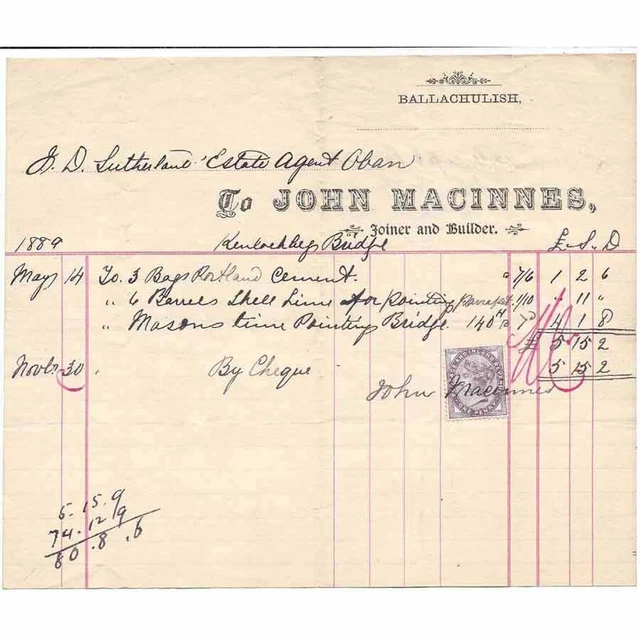 BALLACHULISH,
J. D. Sutherland Estate Agent Oban
To JOHN MACINNES,
Joiner and Builder.
1889 Kenlochbeg Bridge £. S. D
May 14 To. 3 Bags Portland Cement. " 7/6 1 2 6
" 6 Barrels Shell Lime for Pointing 1/10 " 11 "
" Masons time Pointing Bridge 140 H 7D 4 1 8
£ 5 15 2
Novbr 30 By Cheque 5 15 2
John Macinnes
5.15.9
74.12.9
80.8.6